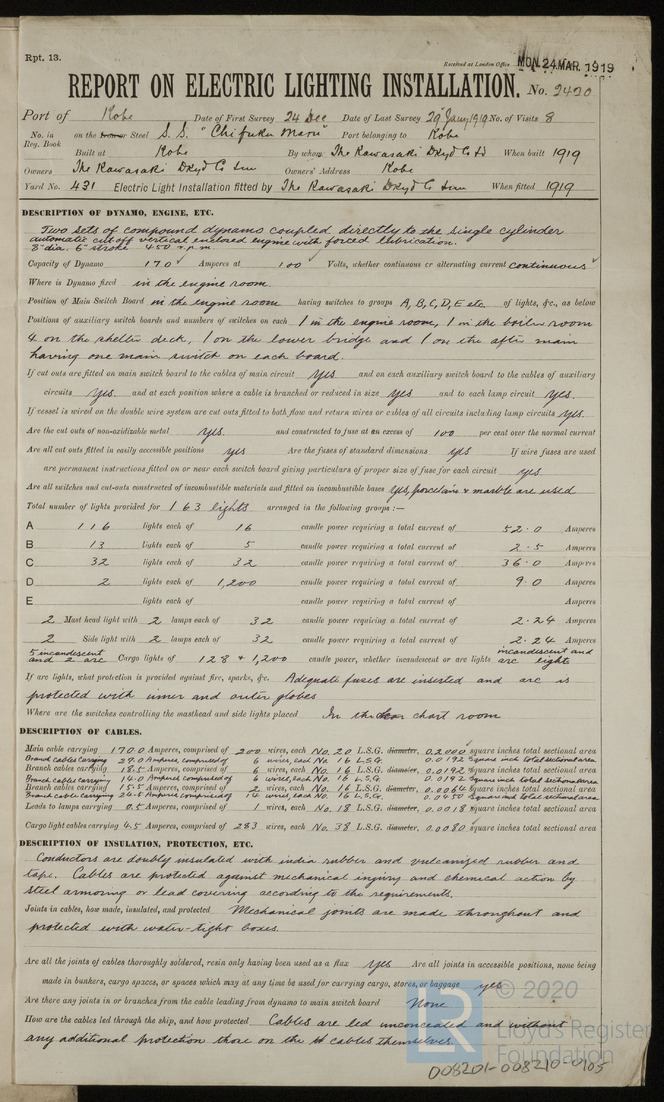 Rpt. 13.
Received at London Office MON. 24 MAR. 1919
REPORT ON ELECTRIC LIGHTING INSTALLATION. No. 2420
Port of Kobe Date of First Survey 24 Dec Date of Last Survey 29 Jany 1919 No. of Visits 8
No. in Reg. Book on the Iron or Steel S.S. "Chifuku Maru" Port belonging to Kobe
Built at Kobe By whom The Kawasaki Dkyd Co Ld When built 1919
Owners The Kawasaki Dkyd Co Ltd Owners' Address Kobe
Yard No. 431 Electric Light Installation fitted by The Kawasaki Dkyd Co Ltd When fitted 1919
DESCRIPTION OF DYNAMO, ENGINE, ETC.
Two sets of compound dynamo coupled directly to the single cylinder
automatic cut off vertical enclosed engine with forced lubrication.
8" dia. 6" stroke 450 r.p.m.
Capacity of Dynamo 170 Amperes at 100 Volts, whether continuous or alternating current continuous
Where is Dynamo fixed in the engine room.
Position of Main Switch Board in the engine room having switches to groups A, B, C, D, E etc. of lights, &c., as below
Positions of auxiliary switch boards and numbers of switches on each 1 in the engine room, 1 in the boiler room
4 on the shelter deck, 1 on the lower bridge and 1 on the after main
having one main switch on each board.
If cut outs are fitted on main switch board to the cables of main circuit yes and on each auxiliary switch board to the cables of auxiliary
circuits yes. and at each position where a cable is branched or reduced in size yes and to each lamp circuit yes.
If vessel is wired on the double wire system are cut outs fitted to both flow and return wires or cables of all circuits including lamp circuits yes.
Are the cut outs of non-oxidizable metal yes. and constructed to fuse at an excess of 100 per cent over the normal current
Are all cut outs fitted in easily accessible positions yes Are the fuses of standard dimensions yes If wire fuses are used
are permanent instructions fitted on or near each switch board giving particulars of proper size of fuse for each circuit yes
Are all switches and cut-outs constructed of incombustible materials and fitted on incombustible bases yes, porcelain & marble are used
Total number of lights provided for 163 lights arranged in the following groups :—
A 116 lights each of 16 candle power requiring a total current of 52.0 Amperes
B 13 lights each of 5 candle power requiring a total current of 2.5 Amperes
C 32 lights each of 32 candle power requiring a total current of 36.0 Amperes
D 2 lights each of 1,200 candle power requiring a total current of 9.0 Amperes
E lights each of candle power requiring a total current of Amperes
2 Mast head light with 2 lamps each of 32 candle power requiring a total current of 2.24 Amperes
2 Side light with 2 lamps each of 32 candle power requiring a total current of 2.24 Amperes
5 incandescent and 2 arc Cargo lights of 128 & 1,200 candle power, whether incandescent or arc lights incandescent and arc lights
If arc lights, what protection is provided against fire, sparks, &c. Adequate fuses are inserted and arc is
protected with inner and outer globes
Where are the switches controlling the masthead and side lights placed In the chart room
DESCRIPTION OF CABLES.
Main cable carrying 170.0 Amperes, comprised of 200 wires, each No. 20 L.S.G. diameter, 0.2000 square inches total sectional area
Branch cables carrying 29.0 Amperes comprised of 6 wires, each No. 16 L.S.G. 0.0192 square inch total sectional area
Branch cables carrying 18.5 Amperes, comprised of 6 wires, each No. 16 L.S.G. diameter, 0.0192 square inches total sectional area
Branch cables carrying 14.0 Amperes comprised of 6 wires, each No. 16 L.S.G. 0.0192 square inch total sectional area
Branch cables carrying 15.5 Amperes, comprised of 2 wires, each No. 16 L.S.G. diameter, 0.0064 square inches total sectional area
Branch cables carrying 26.5 Amperes comprised of 14 wires, each No. 16 L.S.G. 0.0450 square inch total sectional area
Leads to lamps carrying 0.5 Amperes, comprised of 1 wires, each No. 18 L.S.G. diameter, 0.0018 square inches total sectional area
Cargo light cables carrying 4.5 Amperes, comprised of 283 wires, each No. 38 L.S.G. diameter, 0.0080 square inches total sectional area
DESCRIPTION OF INSULATION, PROTECTION, ETC.
Conductors are doubly insulated with india rubber and vulcanized rubber and
tape. Cables are protected against mechanical injury and chemical action by
steel armoring or lead covering according to the requirements.
Joints in cables, how made, insulated, and protected Mechanical joints are made throughout and
protected with water-tight boxes.
Are all the joints of cables thoroughly soldered, resin only having been used as a flux yes Are all joints in accessible positions, none being
made in bunkers, cargo spaces, or spaces which may at any time be used for carrying cargo, stores, or baggage yes
Are there any joints in or branches from the cable leading from dynamo to main switch board None
How are the cables led through the ship, and how protected Cables are led unconcealed and without
any additional protection those on the cables themselves.
© 2020
Lloyd's Register
Foundation
008201-008210-0105